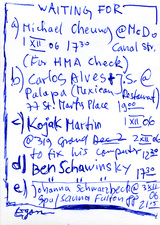 WAITING FOR
a) Michael Cheung @ McDo
1 XII 06 1730 Canal str.
(For HMA check)
b) Carlos Alves + J.S. @
Palapa (Mexican Restaurant)
77 St! Marks Place 1900
c) Kojak Martin 1 XII 06
@ 319 Grand Dec 2 2 XII 06
to fix his computer 1230
d) Ben Schawinsky 1730
e) Johanna Schwarzbeck @ 3 XII 06
Spa/Sauna Fulton 88 2115